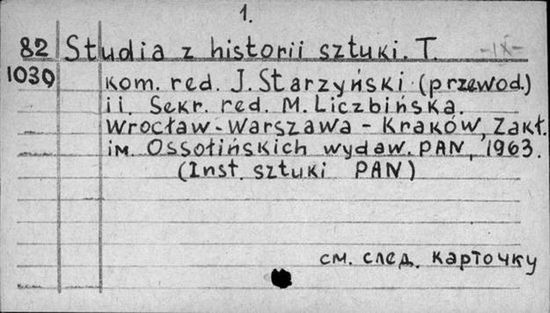 1.
82 Studia z historii sztuki. T. -IX-
1039 kom. red. J. Starzyński (przewod.)
i i. Sekr. red. M. Liczbińska.
Wrocław-Warszawa-Kraków, Zakł.
im. Ossolińskich wydaw. PAN, 1963.
(Inst. sztuki PAN)
см. след. карточку